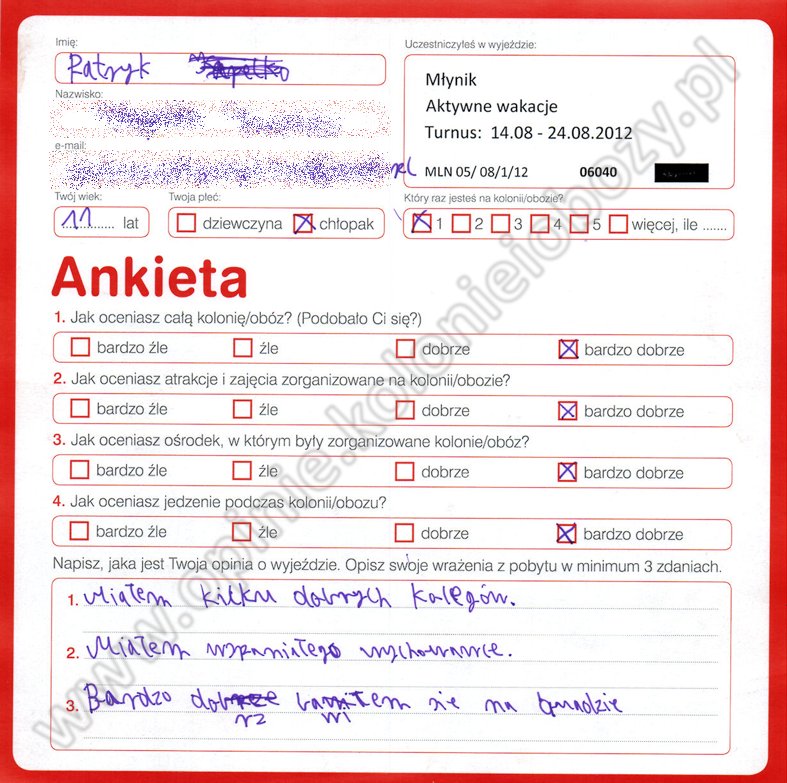 Imię:
Patryk
Uczestniczyłeś w wyjeździe:
Młynik
Aktywne wakacje
Turnus: 14.08 - 24.08.2012
MLN 05/ 08/1/12 06040
Nazwisko:
e-mail:
Twój wiek:
11 lat
Twoja płeć:
dziewczyna chłopak
Który raz jesteś na kolonii/obozie?
1 2 3 4 5 więcej, ile .......
Ankieta
1. Jak oceniasz całą kolonię/obóz? (Podobało Ci się?)
bardzo źle źle dobrze bardzo dobrze
2. Jak oceniasz atrakcje i zajęcia zorganizowane na kolonii/obozie?
bardzo źle źle dobrze bardzo dobrze
3. Jak oceniasz ośrodek, w którym były zorganizowane kolonie/obóz?
bardzo źle źle dobrze bardzo dobrze
4. Jak oceniasz jedzenie podczas kolonii/obozu?
bardzo źle źle dobrze bardzo dobrze
Napisz, jaka jest Twoja opinia o wyjeździe. Opisz swoje wrażenia z pobytu w minimum 3 zdaniach.
1. Miałem kilku dobrych kolegów.
2. Miałem wspaniałego wychowawce.
3. Bardzo się na
www.opinie.kolonieiobozy.pl